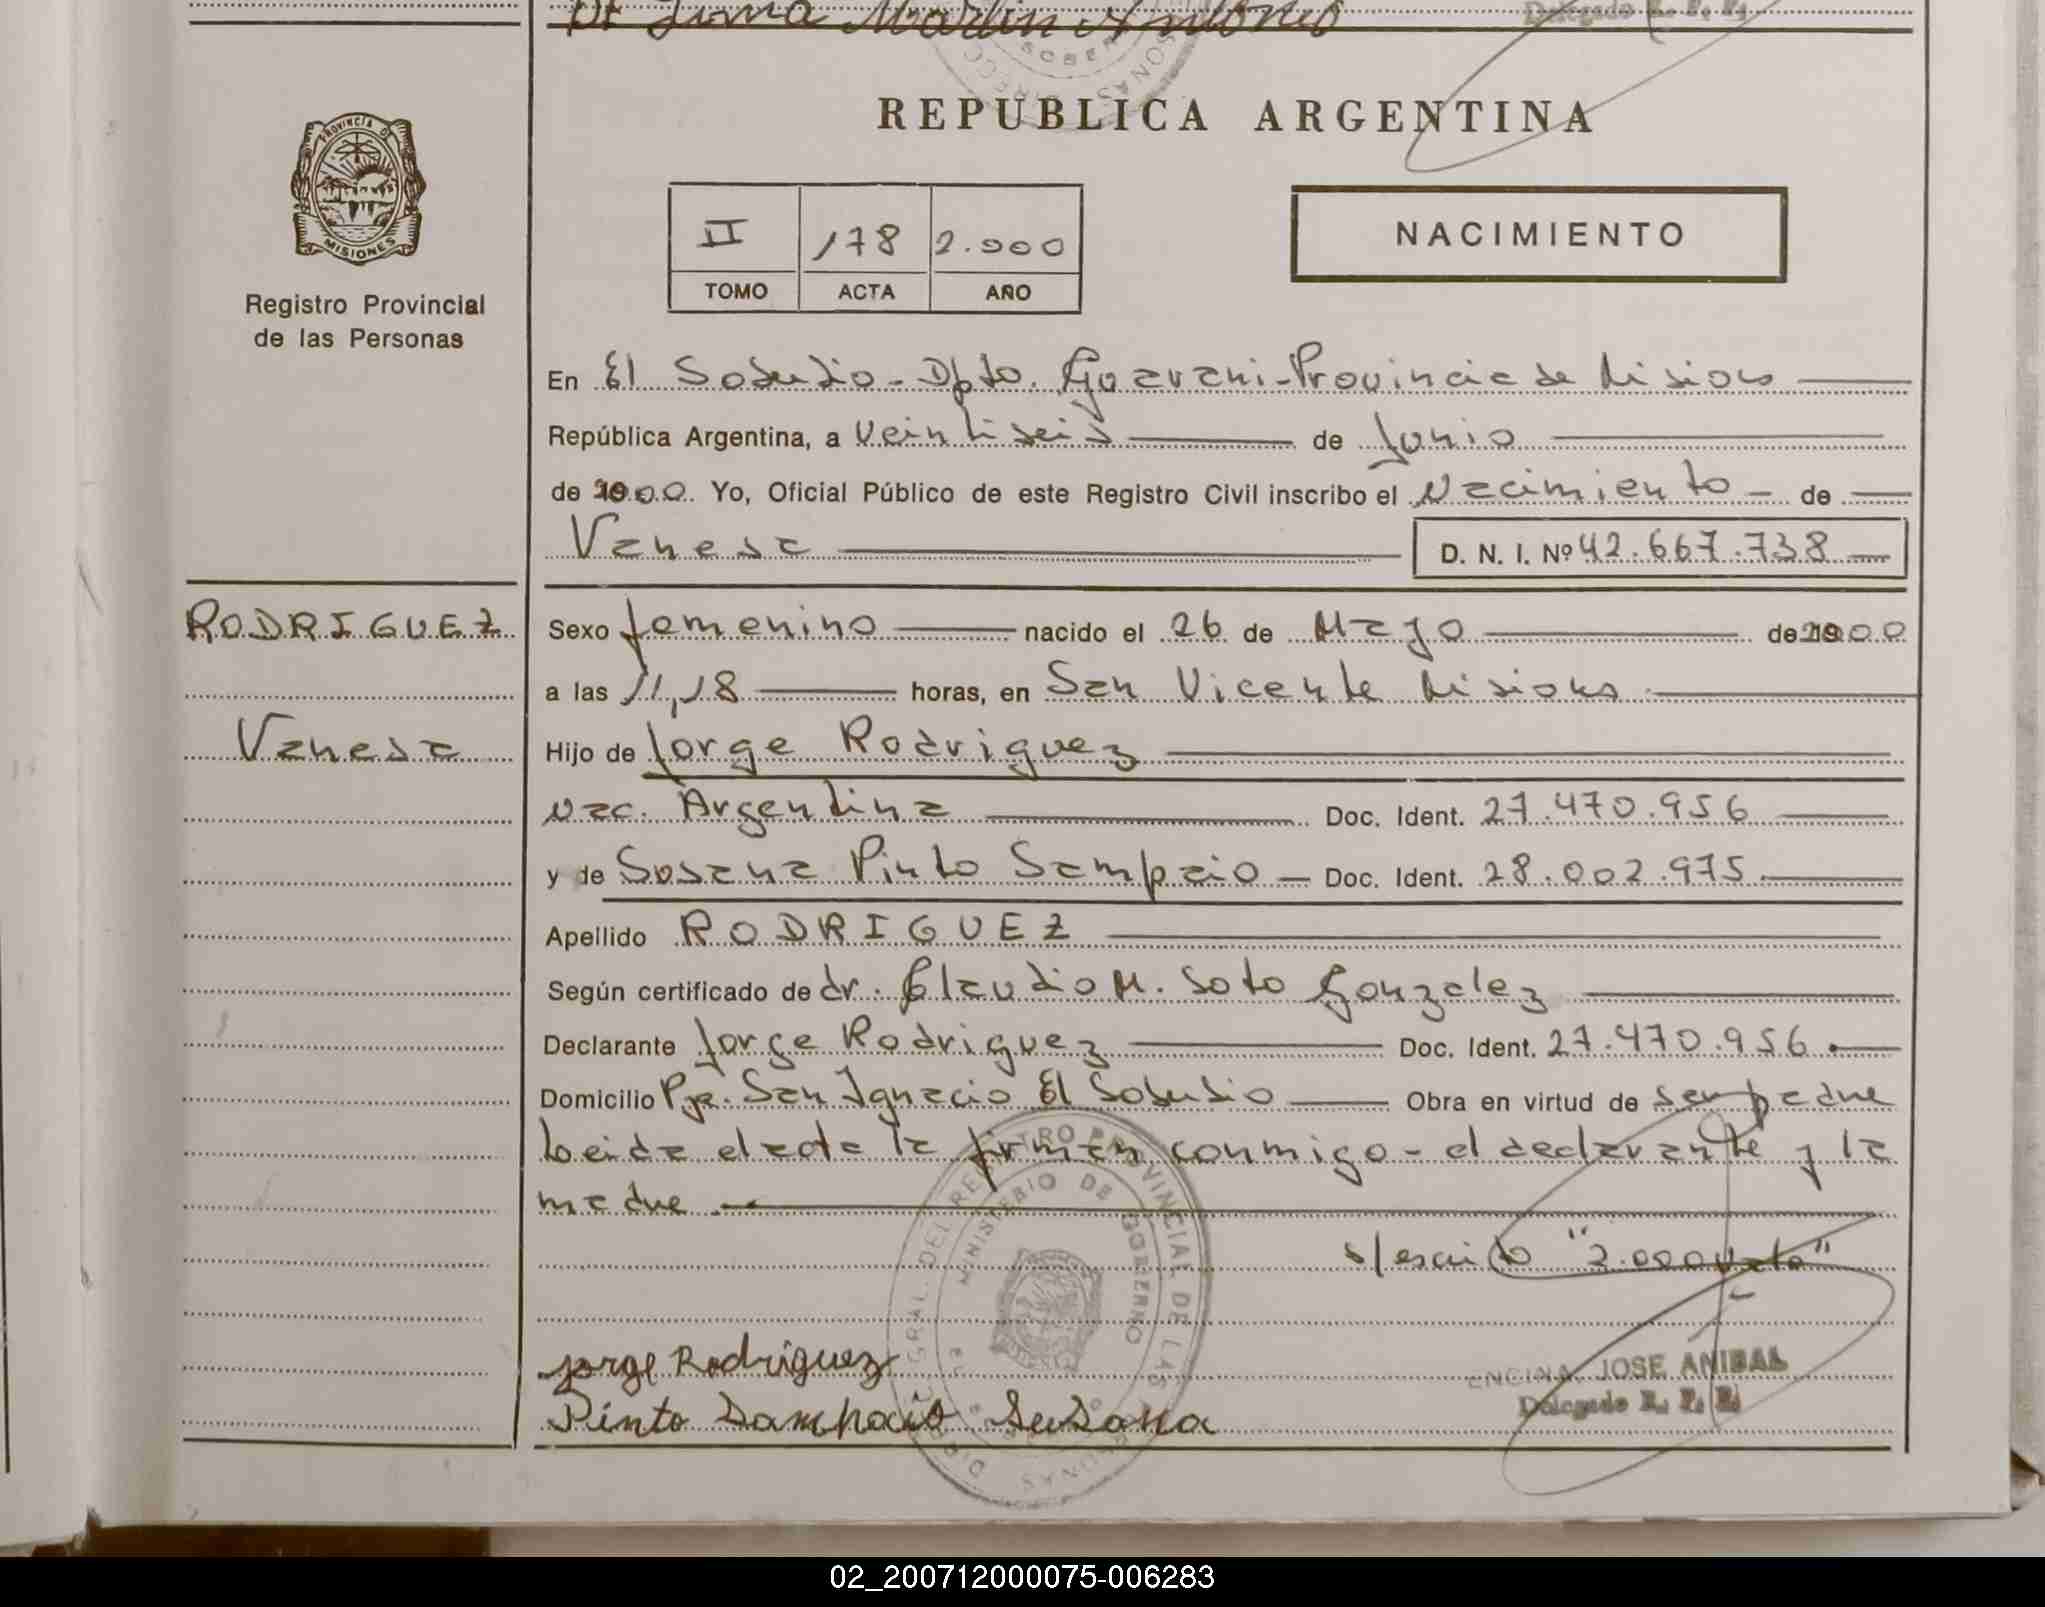 De Lima Martin Antonio
Delegado R. P. P.
REPUBLICA ARGENTINA
PROVINCIA DE
MISIONES
Registro Provincial
de las Personas
II 178 2.000
TOMO ACTA AÑO
NACIMIENTO
En El Soberbio - Dpto. Guarani - Provincia de Misiones
República Argentina, a veintiseis de Junio
de 2000 Yo, Oficial Público de este Registro Civil inscribo el Nacimiento - de
Vanesa D. N. I. Nº 42.667.738
RODRIGUEZ
Vanesa
Sexo femenino nacido el 26 de Mayo de 2000
a las 11,18 horas, en San Vicente Misiones
Hijo de Jorge Rodriguez
Nac. Argentina Doc. Ident. 27.470.956
y de Susana Pinto Sampaio - Doc. Ident. 28.002.975
Apellido RODRIGUEZ
Según certificado de dr. Claudio M. Soto Gonzalez
Declarante Jorge Rodriguez Doc. Ident. 27.470.956
Domicilio Pje. San Ignacio El Soberbio Obra en virtud de ser padre
Leida el acta la firman conmigo - el declarante y la
madre
s/escrito "2.000 vale"
Jorge Rodriguez
Pinto Sampaio Susana
ENCINA, JOSE ANIBAL
Delegado R. P. P.
DIREC. GRAL. DEL REGISTRO PROVINCIAL DE LAS PERSONAS
MINISTERIO DE GOBIERNO
02_200712000075-006283